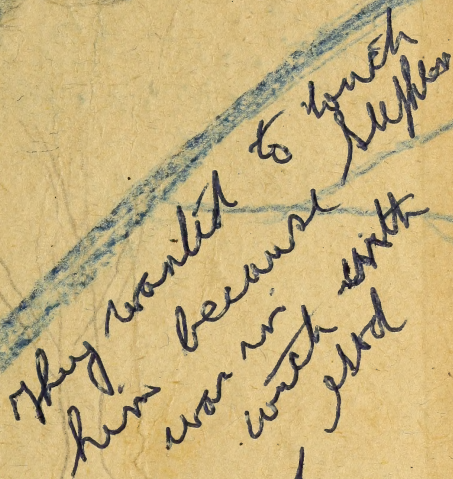 They wanted to touch
him because Stephen
was in
with God